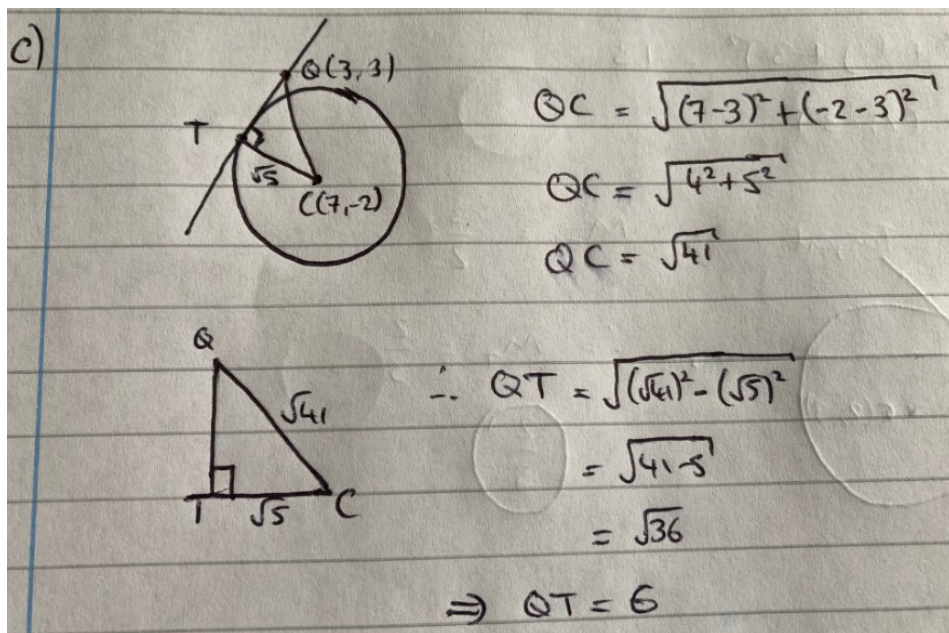 c)
Q(3,3)
T
√5
C(7,-2)
QC = √((7-3)²+(-2-3)²)
QC = √(4²+5²)
QC = √41
Q
√41
T
√5
C
∴ QT = √((√41)²-(√5)²)
= √(41-5)
= √36
⇒ QT = 6